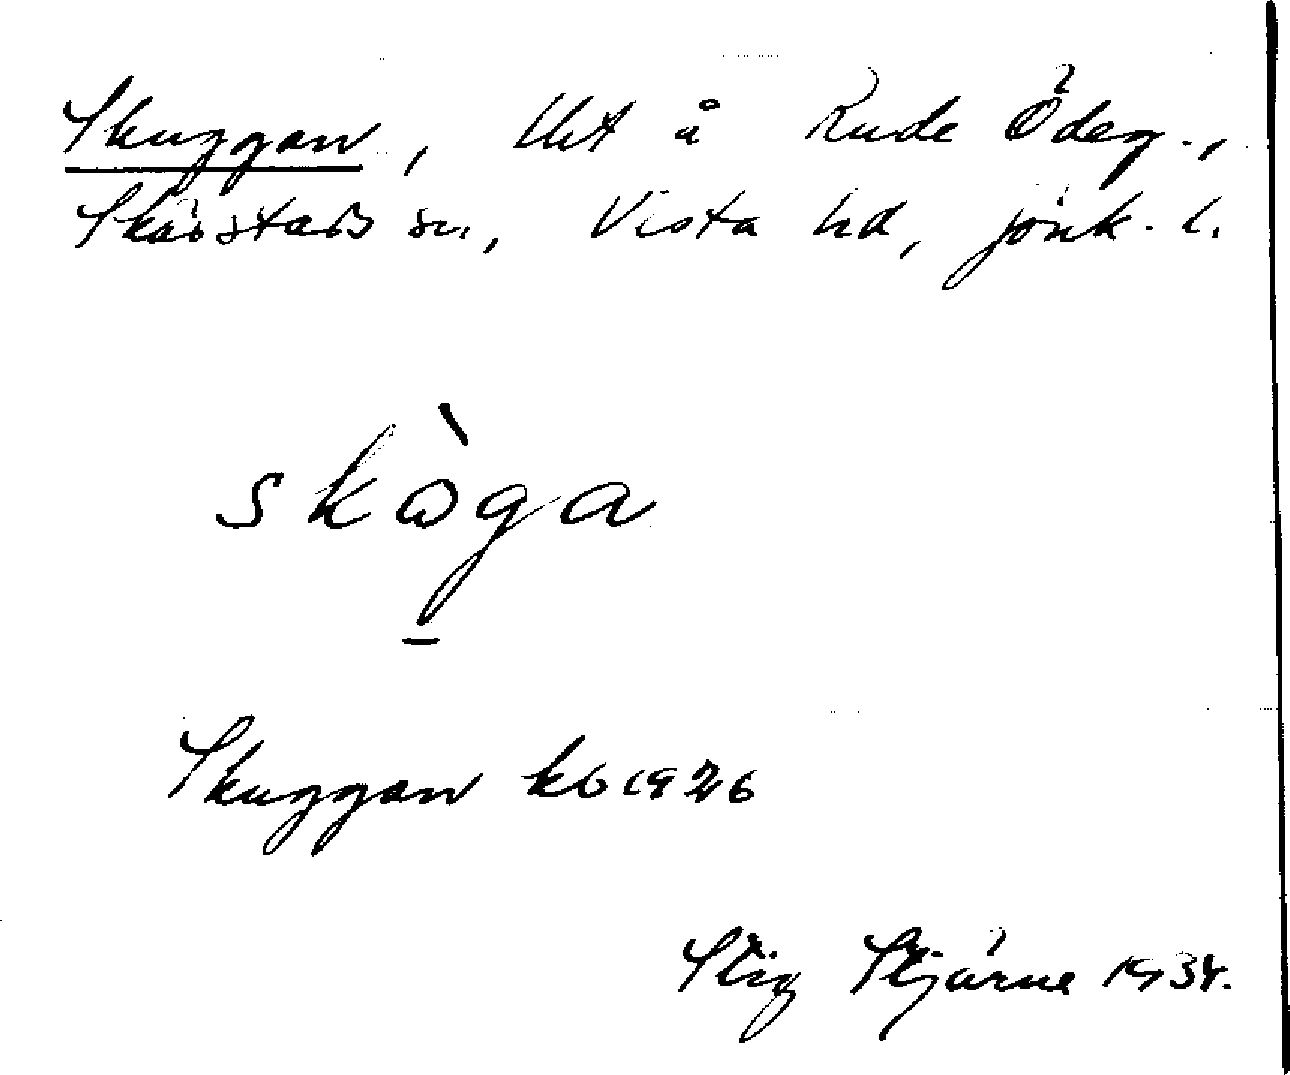 Skuggan, lht å Rude Ödeg.,
Skärstads sn, Vista hd, Jönk. l.
skòga
Skuggan kb 1926
Stig Stjärne 1934.